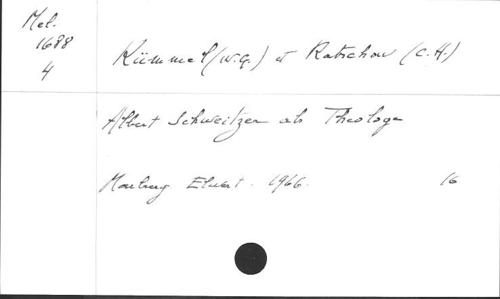 Mel.
1688
4
Kümmel (W.G.) et Ratschow (C.H.)
Albert Schweitzer als Theologe
Marburg Elwert. 1966. 16